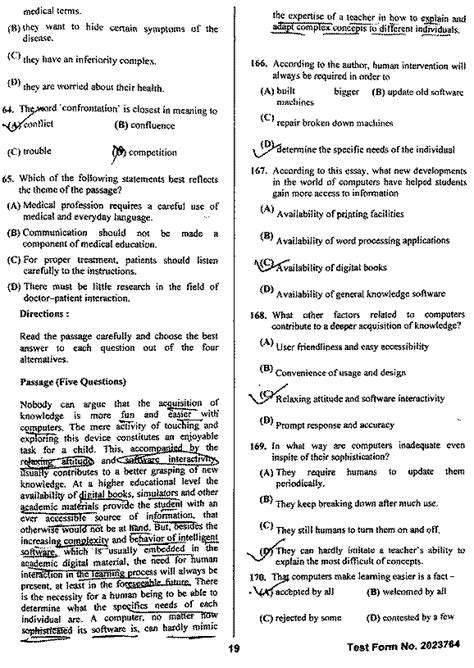 medical terms.
(B) they want to hide certain symptoms of the
disease.
(C) they have an inferiority complex.
(D) they are worried about their health.
64. The word 'confrontation' is closest in meaning to
(A) conflict (B) confluence
(C) trouble (D) competition
65. Which of the following statements best reflects
the theme of the passage?
(A) Medical profession requires a careful use of
medical and everyday language.
(B) Communication should not be made a
component of medical education.
(C) For proper treatment, patients should listen
carefully to the instructions.
(D) There must be little research in the field of
doctor-patient interaction.
Directions :
Read the passage carefully and choose the best
answer to each question out of the four
alternatives.
Passage (Five Questions)
Nobody can argue that the acquisition of
knowledge is more fun and easier with
computers. The mere activity of touching and
exploring this device constitutes an enjoyable
task for a child. This, accompanied by the
relaxing attitude and software interactivity,
usually contributes to a better grasping of new
knowledge. At a higher educational level the
availability of digital books, simulators and other
academic materials provide the student with an
ever accessible source of information, that
otherwise would not be at hand. But, besides the
increasing complexity and behavior of intelligent
software, which is usually embedded in the
academic digital material, the need for human
interaction in the learning process will always be
present, at least in the foreseeable future. There
is the necessity for a human being to be able to
determine what the specifics needs of each
individual are. A computer, no matter how
sophisticated its software is, can hardly mimic
the expertise of a teacher in how to explain and
adapt complex concepts to different individuals.
166. According to the author, human intervention will
always be required in order to
(A) built bigger (B) update old software
machines
(C) repair broken down machines
(D) determine the specific needs of the individual
167. According to this essay, what new developments
in the world of computers have helped students
gain more access to information
(A) Availability of printing facilities
(B) Availability of word processing applications
(C) Availability of digital books
(D) Availability of general knowledge software
168. What other factors related to computers
contribute to a deeper acquisition of knowledge?
(A) User friendliness and easy accessibility
(B) Convenience of usage and design
(C) Relaxing attitude and software interactivity
(D) Prompt response and accuracy
169. In what way are computers inadequate even
inspite of their sophistication?
(A) They require humans to update them
periodically.
(B) They keep breaking down after much use.
(C) They still humans to turn them on and off.
(D) They can hardly imitate a teacher's ability to
explain the most difficult of concepts.
170. That computers make learning easier is a fact –
(A) accepted by all (B) welcomed by all
(C) rejected by some (D) contested by a few
19 Test Form No. 2023764